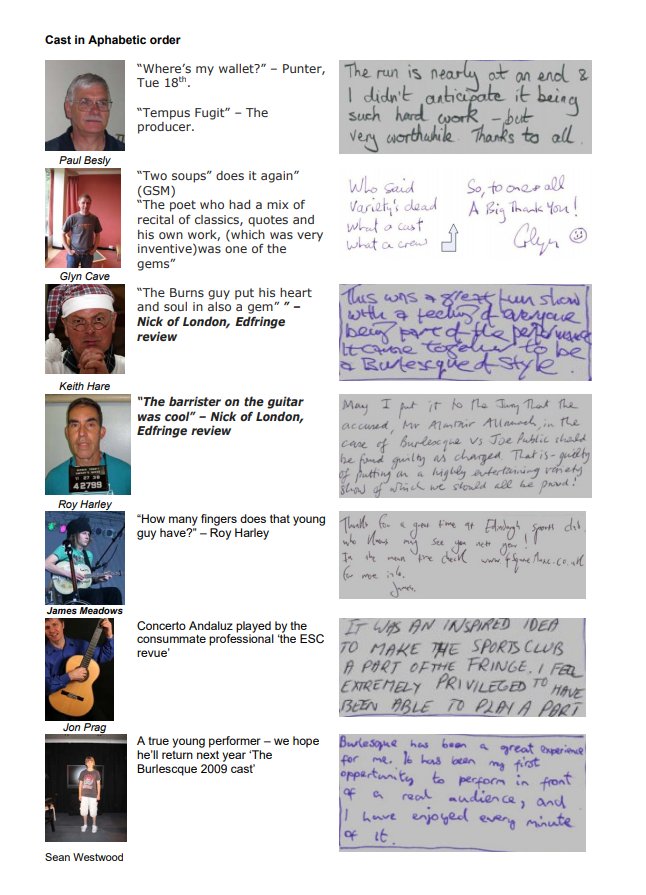 Cast in Aphabetic order
“Where’s my wallet?” – Punter,
Tue 18th.
“Tempus Fugit” – The
producer.
The run is nearly at an end &
I didn't anticipate it being
such hard work – but
very worthwhile. Thanks to all.
Paul Besly
“Two soups” does it again”
(GSM)
“The poet who had a mix of
recital of classics, quotes and
his own work, (which was very
inventive)was one of the
gems”
Who said
Variety's dead
what a cast
what a crew
So, to one & all
A Big Thank You!
Glyn
Glyn Cave
“The Burns guy put his heart
and soul in also a gem” ” –
Nick of London, Edfringe
review
This was a great fun show
with a feeling of everyone
being part of the performance
it came together to be
a Burlesque of Style.
Keith Hare
“The barrister on the guitar
was cool” – Nick of London,
Edfringe review
42799
May I put it to the Jury that the
accused, Mr Alastair in the
case of Burlesque vs Joe Public should
be found guilty as charged. That is – guilty
of putting on a highly entertaining variety
show of which we should all be proud!
Roy Harley
“How many fingers does that young
guy have?” – Roy Harley
Thanks for a great time at Edinburgh sports club
who knows may see you next year!
In the mean time check www.
for more info.
James.
James Meadows
Concerto Andaluz played by the
consummate professional ‘the ESC
revue’
IT WAS AN INSPIRED IDEA
TO MAKE THE SPORTSCLUB
A PART OF THE FRINGE. I FEEL
EXTREMELY PRIVILEGED TO HAVE
BEEN ABLE TO PLAY A PART
Jon Prag
A true young performer – we hope
he’ll return next year ‘The
Burlescque 2009 cast’
Burlesque has been a great experience
for me. It has been my first
opportunity to perform in front
of a real audience, and
I have enjoyed every minute
of it.
Sean Westwood